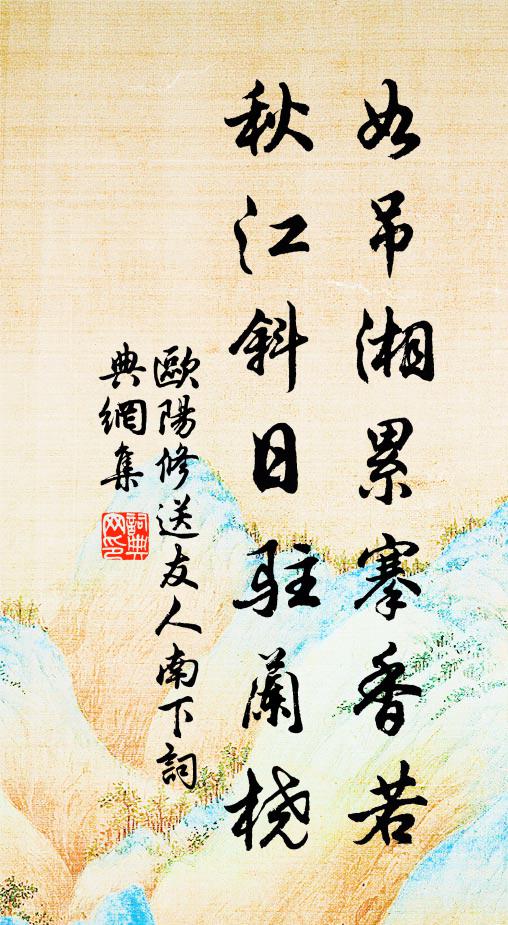 如吊湘累搴香若
秋江斜日駐蘭橈
歐陽修送友人南下詞
典網集
詞典
网印